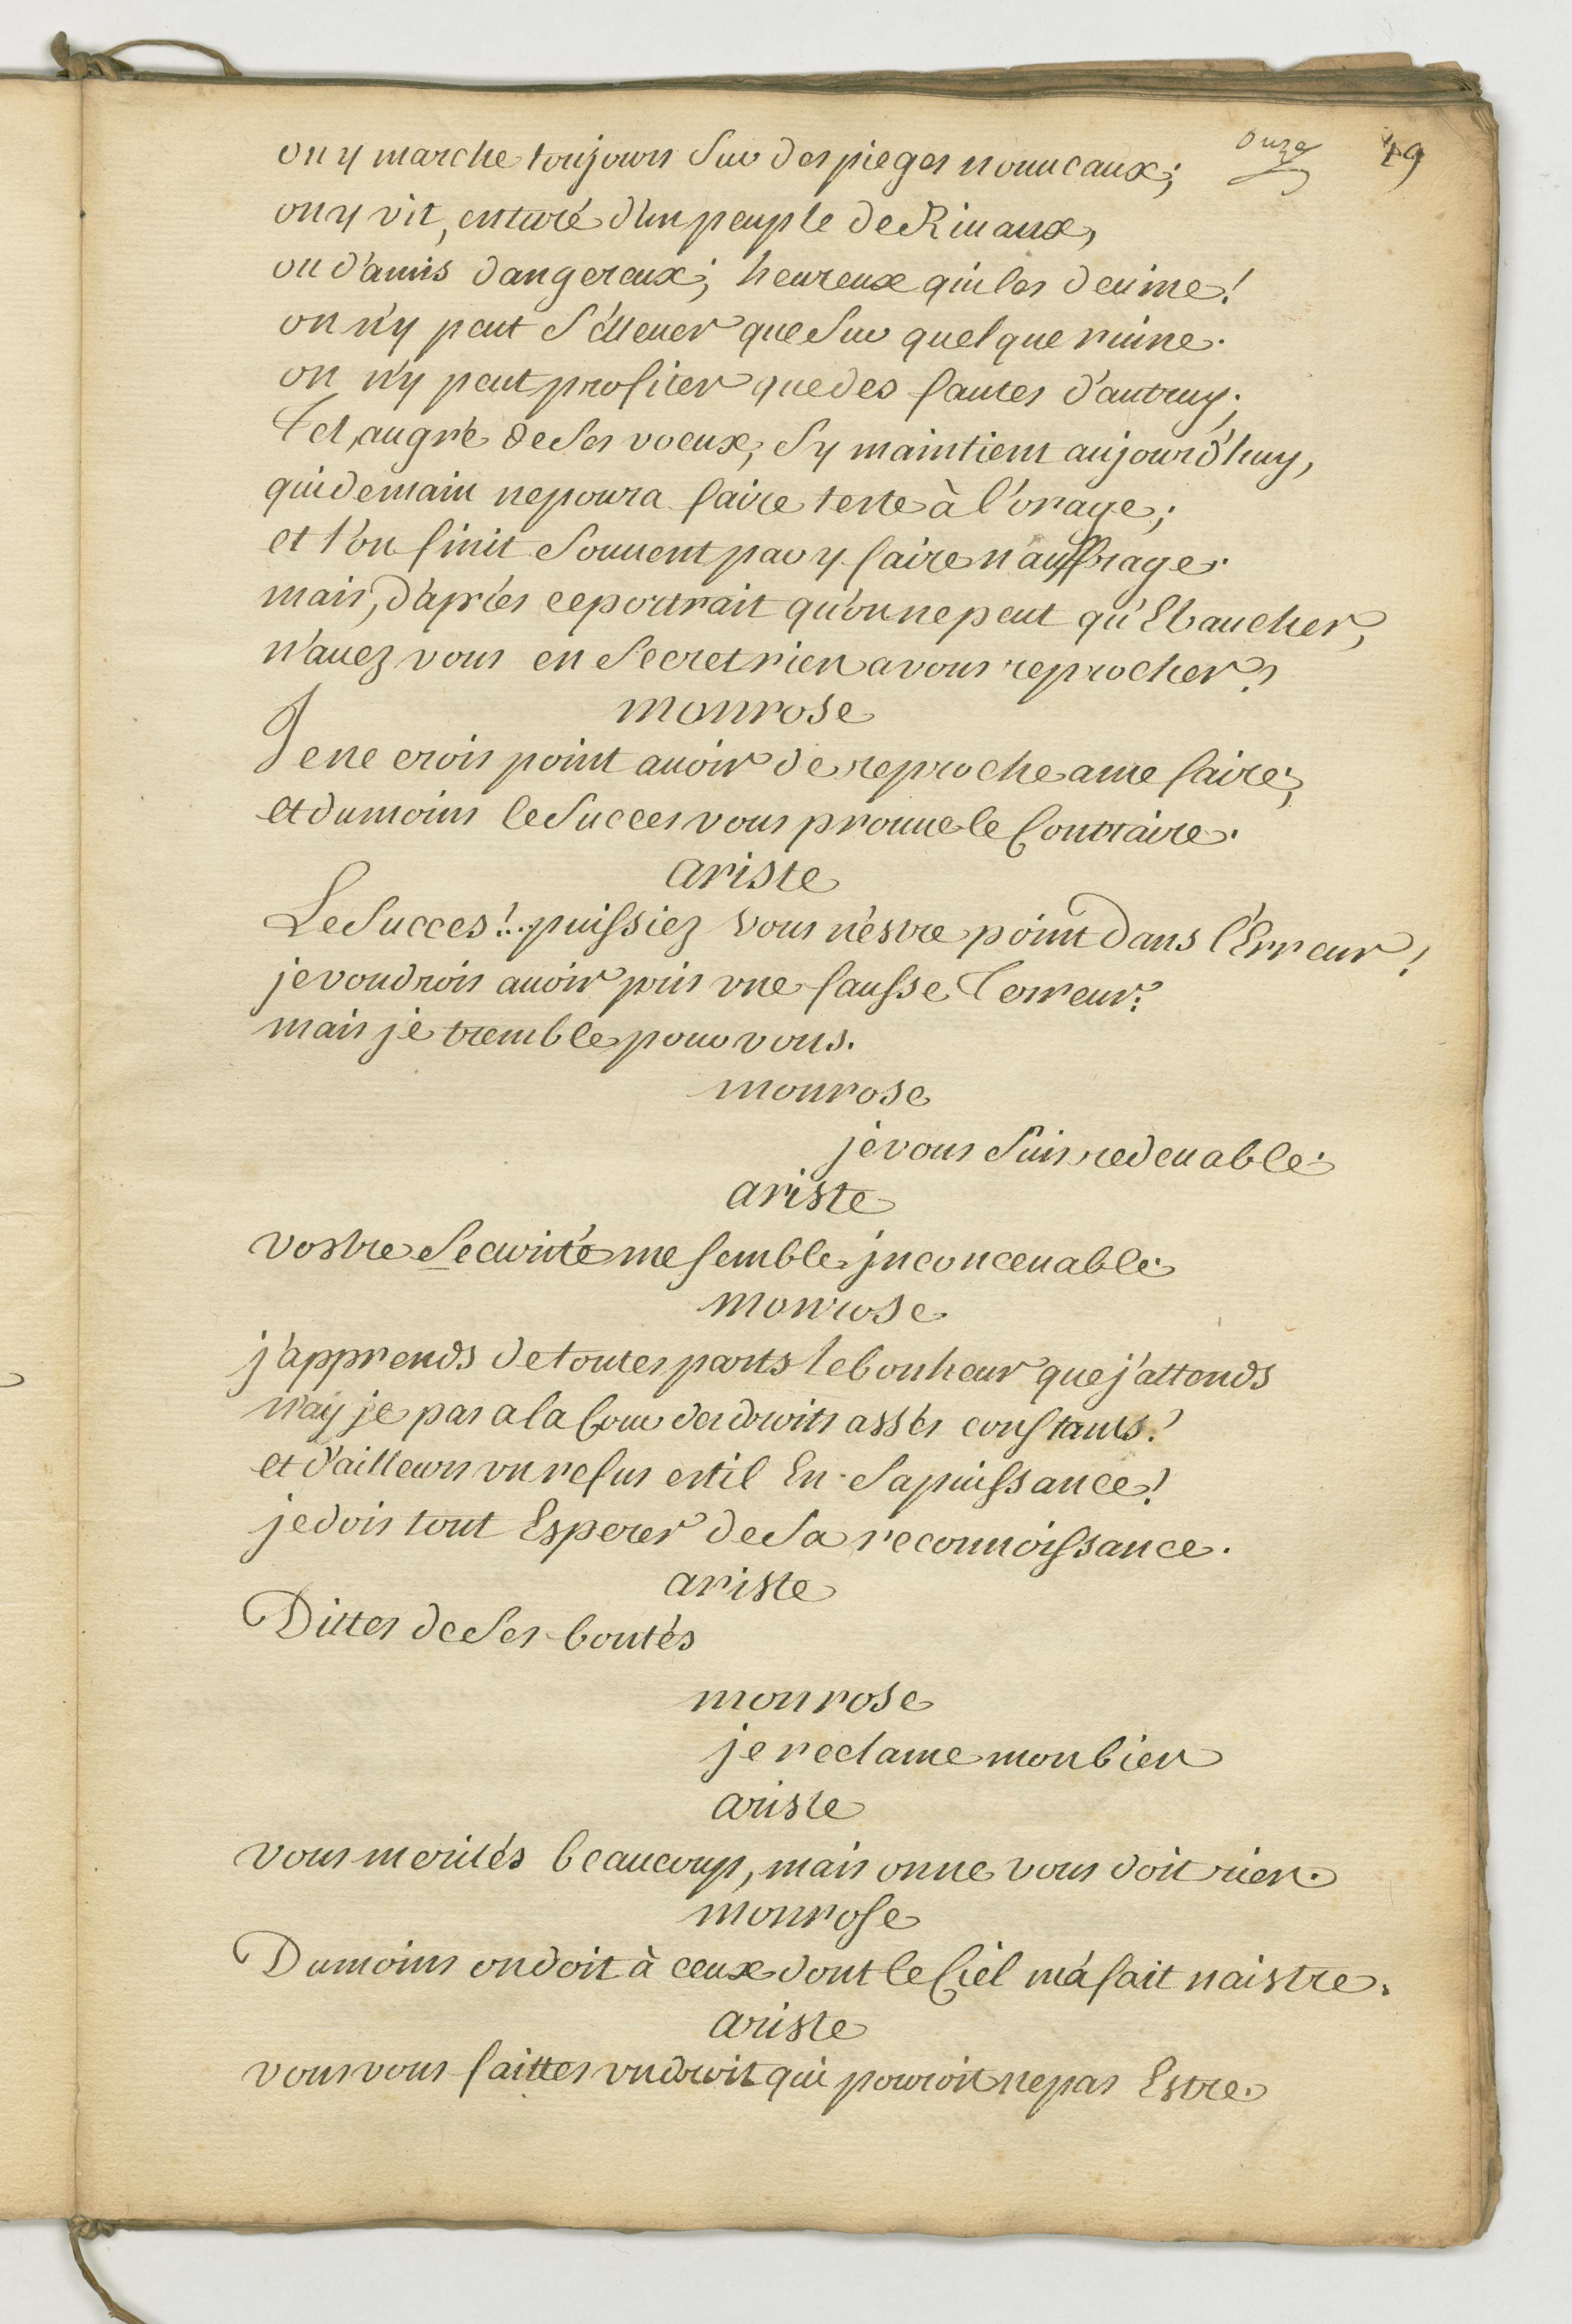 onze 19
on y marche toujours Sur des pieges nouueaux;
on y vit, entouré d'un peuple de Riuaux,
ou d'amis dangereux; heureux qui les deuine!
on n'y peut S'elleuer que Sur quelque ruine.
on n'y peut profiter que des fautes d'autruy;
Tel, au gré de Ses voeux, S'y maintient aujourd'huy,
qui demain ne poura faire teste à l'orage;
et l'on finit Souuent par y faire nauffrage.
mais, d'aprés ce portrait qu'on ne peut qu'Ebaucher,
n'auez vous en Secret rien a vous reprocher?
monrose
Je ne crois point auoir de reproche a me faire;
et du moins le Succes vous prouue le Contraire.
ariste
Le Succes!.. puissiez vous n'estre point dans l'Erreur!
je voudrois auoir pris vne fausse Terreur:
mais je tremble pour vous.
monrose
je vous Suis redeuable.
ariste
vostre Securité me semble jnconceuable.
monrose
j'apprends de toutes parts le bonheur que j'attends
n'ay je pas a la Cour des droits assés constants?
et d'ailleurs vn refus est il En Sa puissance?
je dois tout Esperer de Sa reconnoissance.
ariste
Dittes de Ses bontés
monrose
je reclame mon bien
ariste
vous merités beaucoup, mais on ne vous doit rien.
monrose
Du moins on doit à ceux dont le Ciel m'a fait naistre.
ariste
vous vous faittes vn droit qui pouroit ne pas Estre.